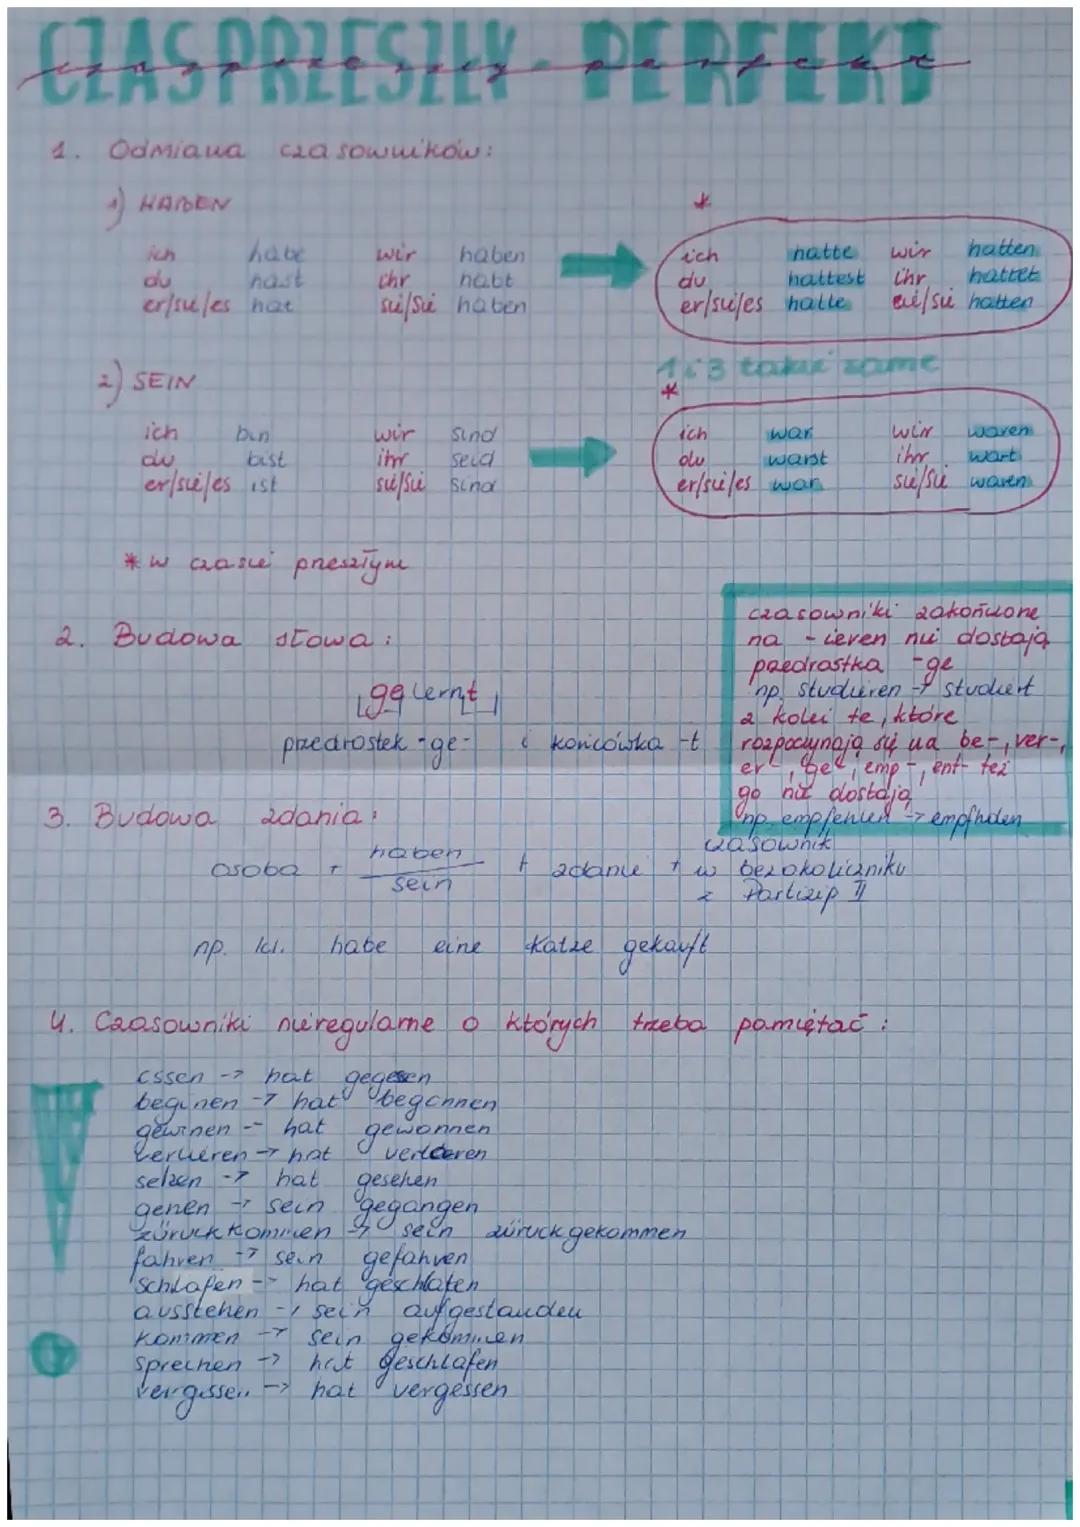 CZAS PRZESZŁY - PERFEKT
czas przeszły - perfekt
1. Odmiana czasowników:
1) HABEN
*
ich habe wir haben
du hast ihr habt
er/sie/es hat sie/Sie haben
ich hatte wir hatten
du hattest ihr hattet
er/sie/es hatte sie/Sie hatten
1 i 3 takie same
2) SEIN
*
ich bin wir sind
du bist ihr seid
er/sie/es ist sie/Sie sind
ich war wir waren
du warst ihr wart
er/sie/es war sie/Sie waren
* w czasie przeszłym
2. Budowa słowa:
gelernt
przedrostek -ge- i końcówka -t
czasowniki zakończone
na -ieren nie dostają
przedrostka -ge
np. studieren → studiert
z kolei te, które
rozpoczynają się na be-, ver-,
er-, ge-, emp-, ent- też
go nie dostają
np. empfehlen →
3. Budowa zdania:
osoba + haben
sein
+ zdanie + czasownik
w bezokoliczniku
z Partizip II
np. Ich habe eine Katze gekauft
4. Czasowniki nieregularne o których trzeba pamiętać:
essen → hat gegessen
beginen → hat begonnen
gewinen → hat gewonnen
verlieren → hat
sehen → hat gesehen
gehen → sein gegangen
zürückkommen → sein zürückgekommen
fahren → sein gefahren
schlafen → hat geschlafen
ausstehen → sein aufgestanden
kommen → sein gekommen
sprechen → hat geschlafen
vergessen → hat vergessen